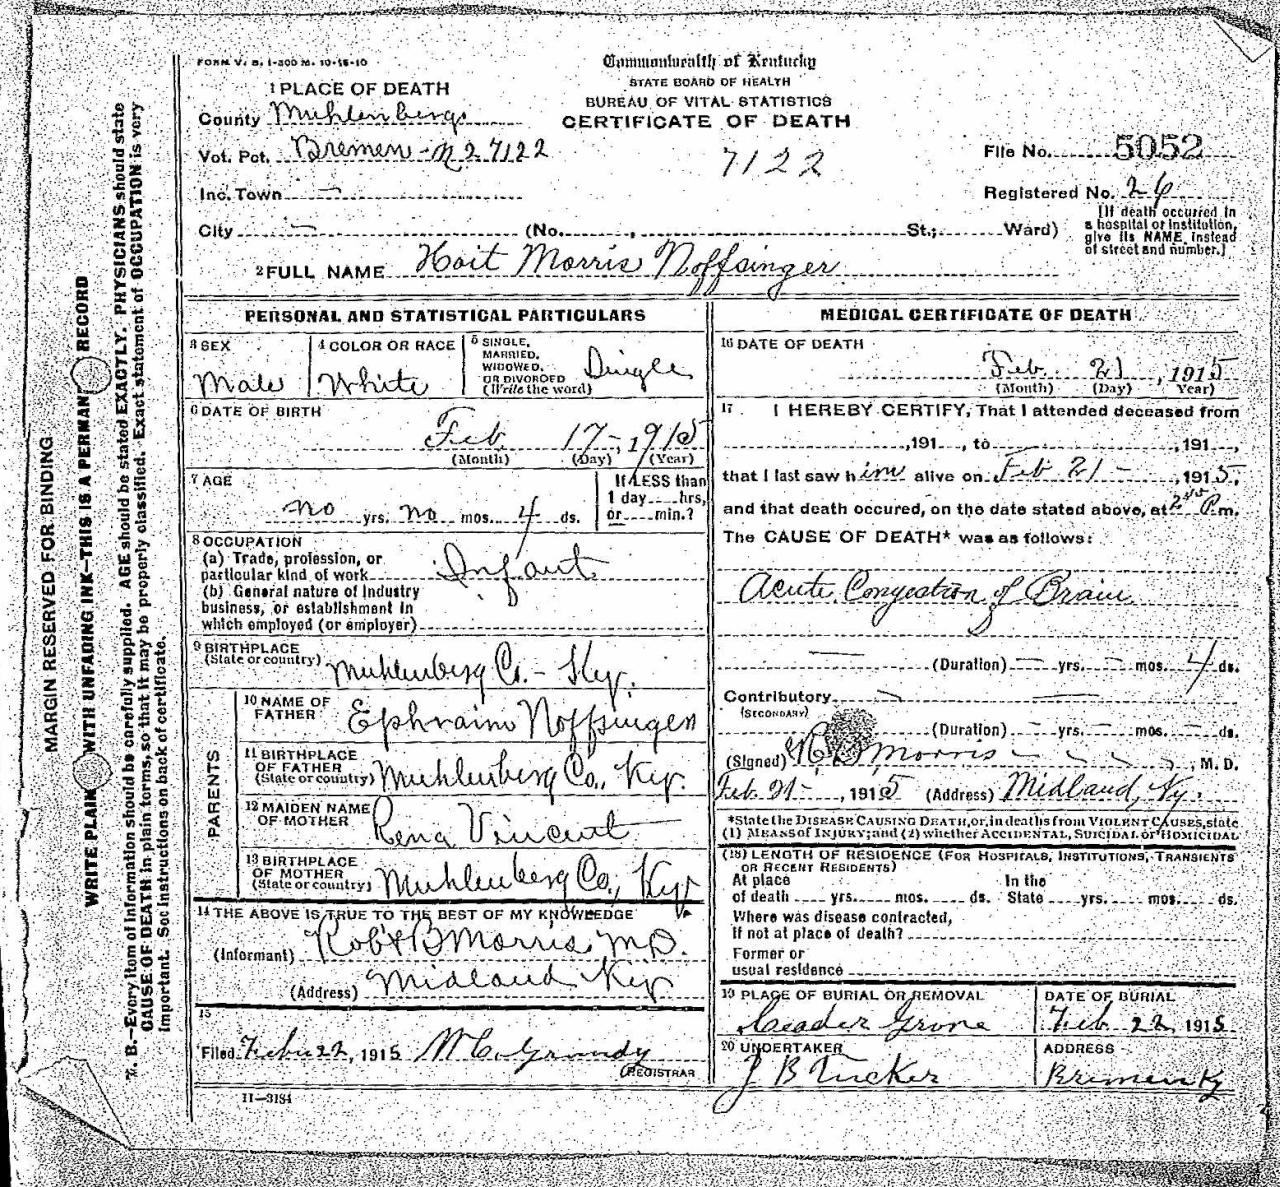 FORM V. S. 1-300 M. 10-16-10
Commonwealth of Kentucky
STATE BOARD OF HEALTH
BUREAU OF VITAL STATISTICS
CERTIFICATE OF DEATH
1 PLACE OF DEATH
County Muhlenberg
Vot. Pct. Bremen - N2 7122
7122
File No. 5052
Inc. Town —
Registered No. 26
City — (No. , St.; Ward)
[If death occurred in
a hospital or institution,
give its NAME instead
of street and number.]
2 FULL NAME Hoit Morris Noffsinger
PERSONAL AND STATISTICAL PARTICULARS
3 SEX
Male
4 COLOR OR RACE
White
5 SINGLE,
MARRIED,
WIDOWED,
OR DIVORCED
(Write the word)
Single
6 DATE OF BIRTH
Feb 17-, 1915
(Month) (Day) (Year)
7 AGE
no yrs. no mos. 4 ds.
If LESS than
1 day hrs,
or min.?
8 OCCUPATION
(a) Trade, profession, or
particular kind of work Infant
(b) General nature of Industry
business, or establishment in
which employed (or employer)
9 BIRTHPLACE
(State or country) Muhlenberg Co. - Ky.
PARENTS
10 NAME OF
FATHER Ephraim Noffsinger
11 BIRTHPLACE
OF FATHER
(State or country) Muhlenberg Co., Ky.
12 MAIDEN NAME
OF MOTHER Rena Vincent
13 BIRTHPLACE
OF MOTHER
(State or country) Muhlenberg Co., Ky.
14 THE ABOVE IS TRUE TO THE BEST OF MY KNOWLEDGE
(Informant) Robt B Morris M.D.
(Address) Midland Ky
15
Filed Feby 22, 1915 W C. Grundy
REGISTRAR
11—3184
MEDICAL CERTIFICATE OF DEATH
16 DATE OF DEATH
Feb 21, 1915
(Month) (Day) Year)
17 I HEREBY CERTIFY, That I attended deceased from
,191 , to ,191 ,
that I last saw him alive on Feb 21 - , 1915,
and that death occured, on the date stated above, at 2 45 P.m.
The CAUSE OF DEATH* was as follows:
Acute Congestion of Brain
— (Duration) — yrs. — mos. 4 ds.
Contributory —
(SECONDARY)
(Duration) — yrs. — mos. — ds.
(Signed) R. B. Morris , M. D.
Feb 21 -, 1915 (Address) Midland, Ky.
*State the DISEASE CAUSING DEATH, or, in deaths from VIOLENT CAUSES, state
(1) MEANS of INJURY; and (2) whether ACCIDENTAL, SUICIDAL or HOMICIDAL
(18) LENGTH OF RESIDENCE (FOR HOSPITALS, INSTITUTIONS, TRANSIENTS
OR RECENT RESIDENTS)
At place In the
of death yrs. mos. ds. State yrs. mos. ds.
Where was disease contracted,
If not at place of death?
Former or
usual residence
19 PLACE OF BURIAL OR REMOVAL
Ceader Grove
DATE OF BURIAL
Feb 22, 1915
20 UNDERTAKER
J B Tucker
ADDRESS
Bremen Ky
MARGIN RESERVED FOR BINDING
WRITE PLAIN WITH UNFADING INK—THIS IS A PERMAN RECORD
N. B.—Every item of information should be carefully supplied. AGE should be stated EXACTLY. PHYSICIANS should state
CAUSE OF DEATH in plain terms, so that it may be properly classified. Exact statement of OCCUPATION is very
important. See instructions on back of certificate.